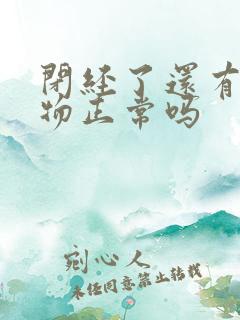 閉経了還有
物正常吗
宛心人
未经同意禁止转载